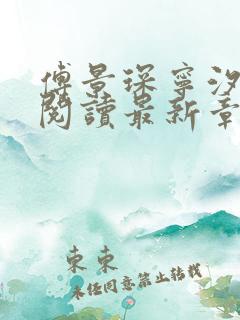 傅景琛寧汐
閱讀最新章
東東
未经同意禁止转载